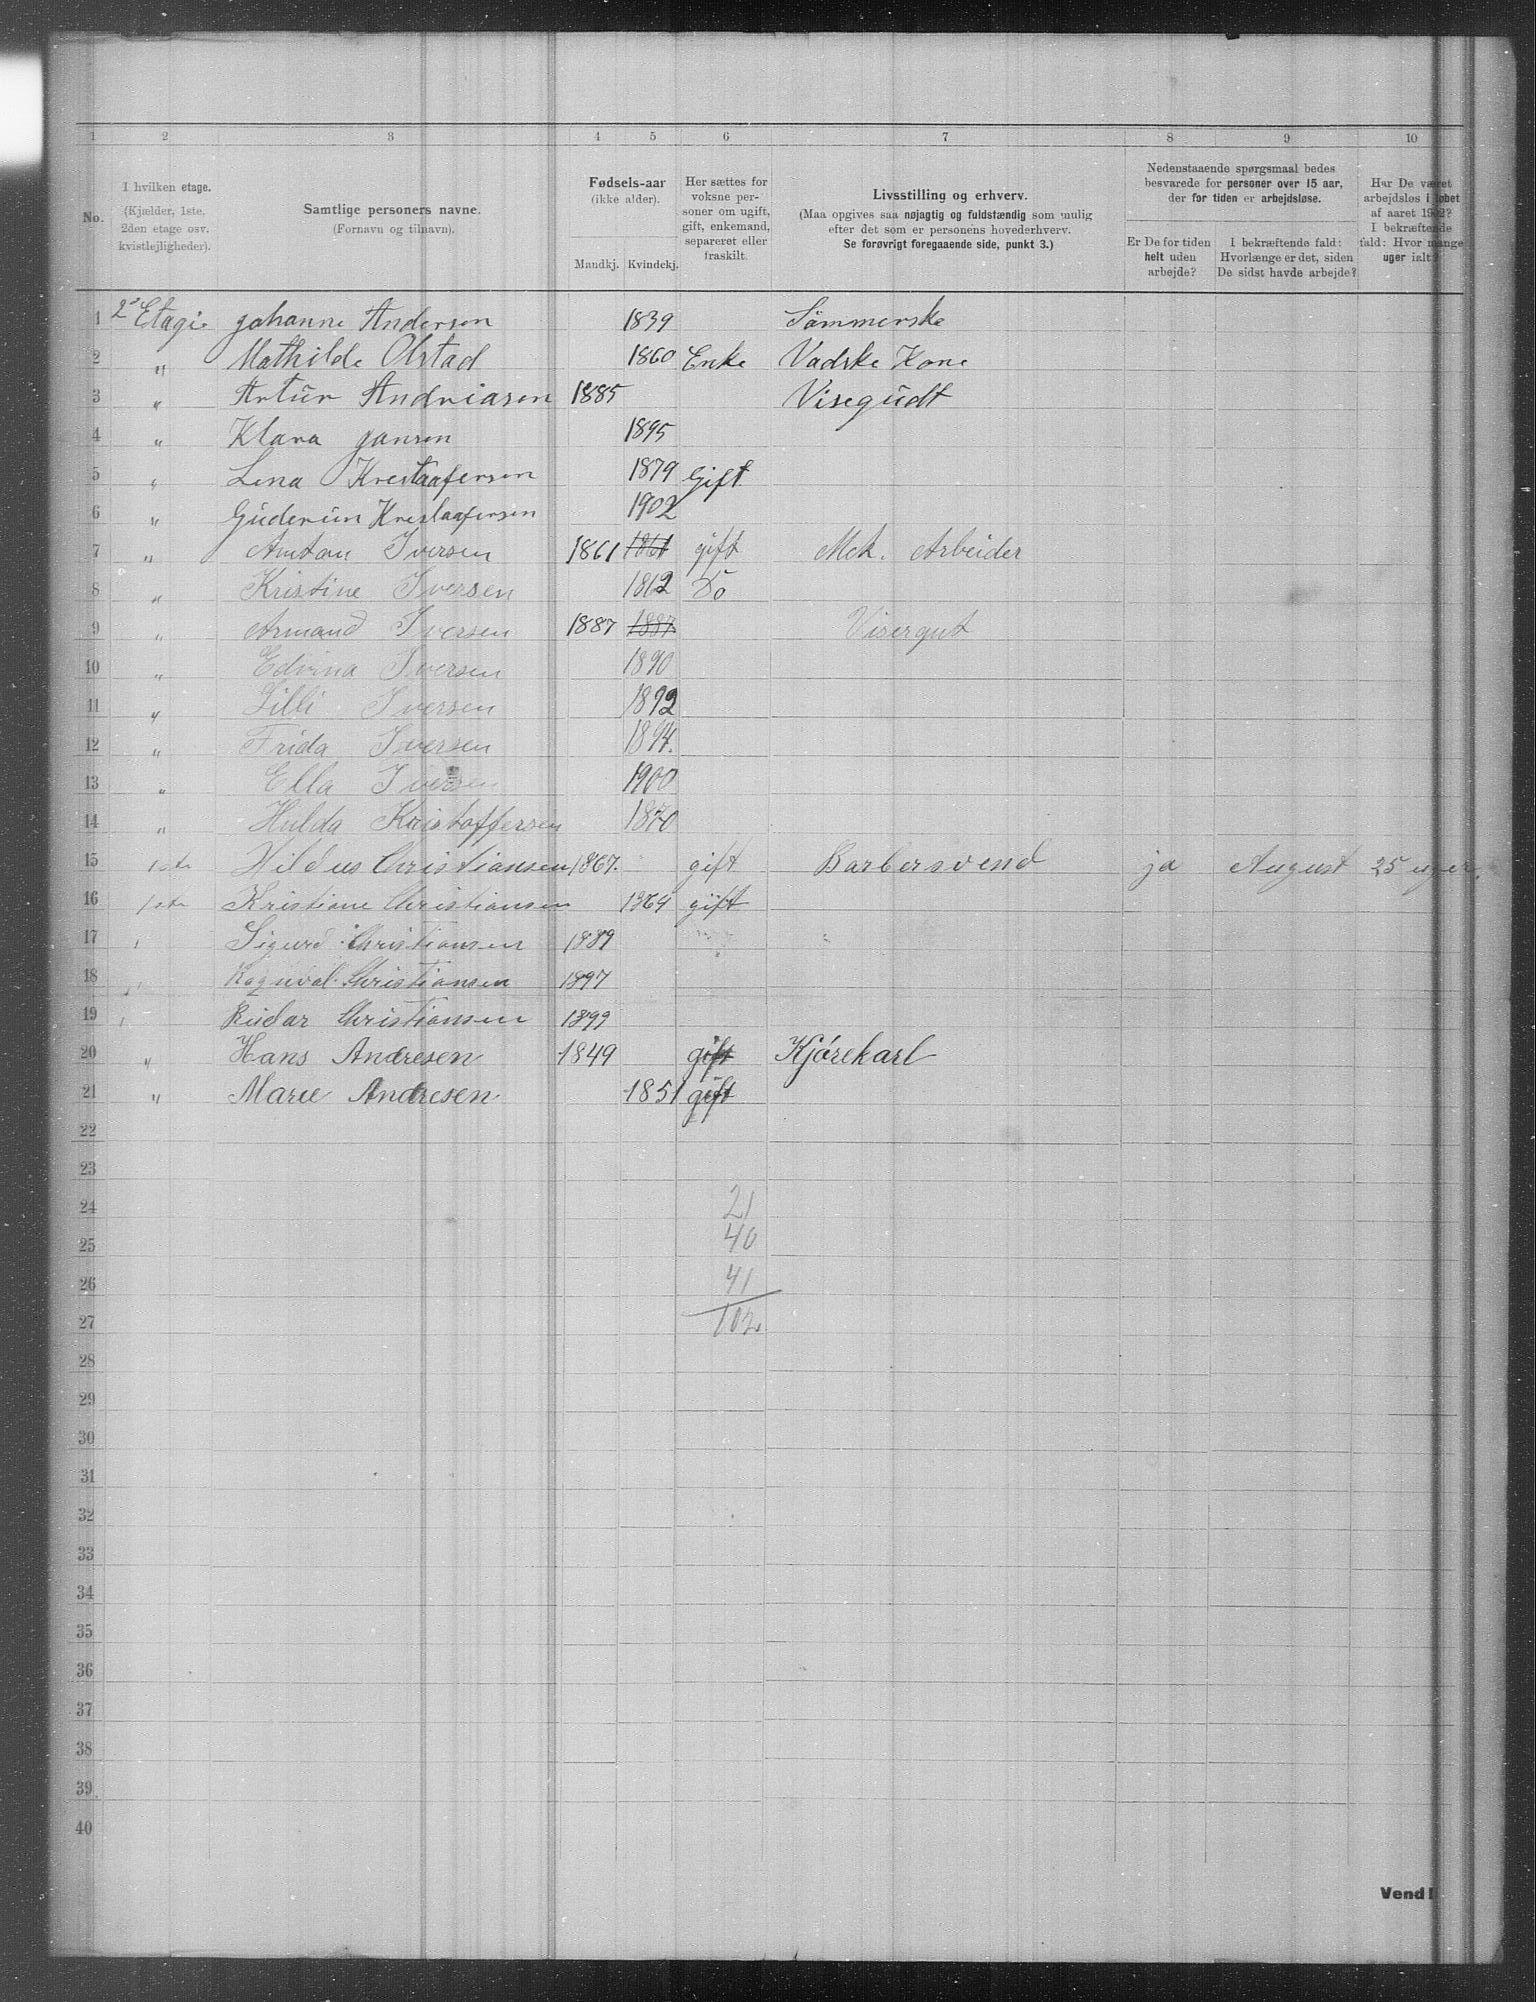 1 2 3 4 5 6 7 8 9 10
No.
I hvilken etage.
(Kjælder, 1ste,
2den etage osv.
kvistlejligheder).
Samtlige personers navne.
(Fornavn og tilnavn).
Fødsels-aar
(ikke alder).
Mandkj. Kvindekj.
Her sættes for
voksne per-
soner om ugift,
gift, enkemand,
separeret eller
fraskilt.
Livsstilling og erhverv.
(Maa opgives saa nøjagtig og fuldstændig som mulig
efter det som er personens hovederhverv.
Se forøvrigt foregaaende side, punkt 3.)
Nedenstaaende spørgsmaal bedes
besvarede for personer over 15 aar,
der for tiden er arbejdsløse.
Er De for tiden
helt uden
arbejde?
I bekræftende fald:
Hvorlænge er det, siden
De sidst havde arbejde?
Har De været
arbejdsløs i løbet
af aaret 1902?
I bekræftende
fald: Hvor mange
uger ialt?
1 2' Etagie Johanne Andersen 1839 Sömmerske
2 " Mathilde Olstad 1860 Enke Vadske Kone
3 " Artur Andriasen 1885 Visegudt
4 " Klara Jansen 1895
5 " Lena Krestaafersen 1879 Gift
6 " Guderun Krestaafersen 1902
7 " Anton Iversen 1861 1861 gift Mek. Arbeider
8 " Kristine Iversen 1862 Do
9 " Armand Iversen 1887 1887 Visergut
10 " Edvina Iversen 1890
11 " Lilli Iversen 1892
12 " Frida Iversen 1894.
13 " Ella Iversen 1900
14 " Hulda Kristoffersen 1870
15 1ste Hildus Christiansen 1867. gift Barbersvend ja August 25 uger.
16 1ste Kristiane Christiansen 1864 gift
17 " Sigurd Christiansen 1889
18 " Ragnval Christiansen 1897
19 " Reidar Christiansen 1899
20 " Hans Andresen 1849 gift Kjørekarl
21 " Marie Andresen 1851 gift
22
23
24 21
25 40
26 41
27 102.
28
29
30
31
32
33
34
35
36
37
38
39
40
Vend!